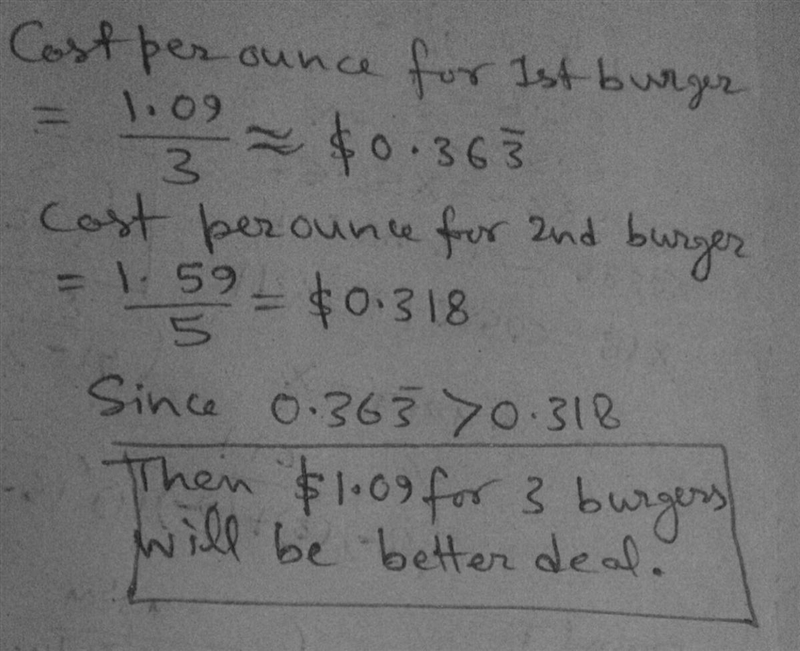 Cost per ounce for 1st burger
= 1.09/3 ≈ $0.363̅
Cost per ounce for 2nd burger
= 1.59/5 = $0.318
Since 0.363̅ > 0.318
Then $1.09 for 3 burgers
will be better deal.